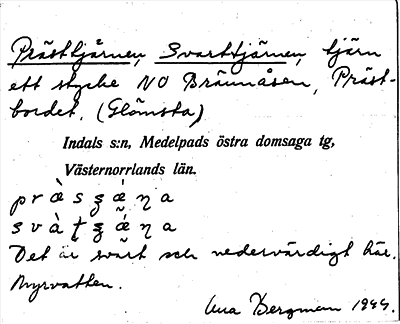 Prästtjärnen, Svarttjärnen, tjärn
ett stycke NO Brännåsen, Präst-
bordet. (Glömsta)
Indals s:n, Medelpads östra domsaga tg,
Västernorrlands län.
Det är svart och nedervärdigt här.
Myrvatten.
Bergman 1944.